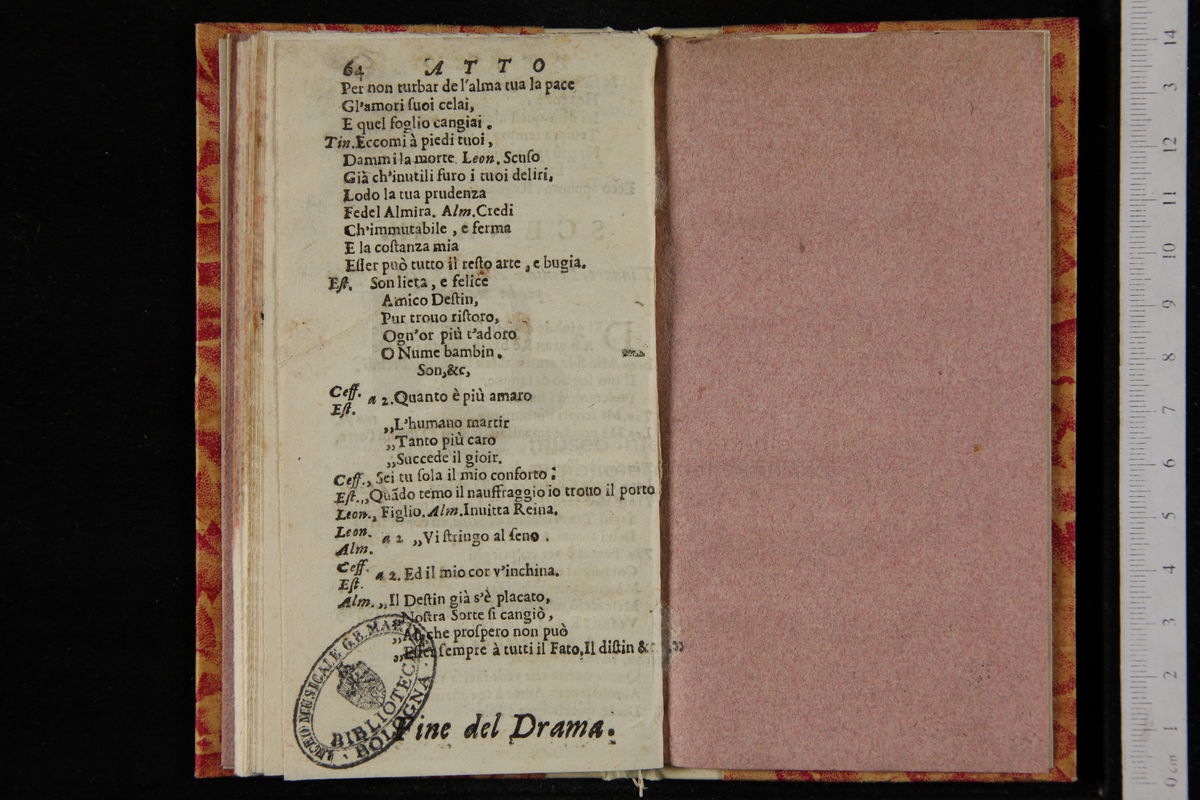 64 ATTO
Per non turbar de l'alma tua la pace
Gl'amori ſuoi celai,
E quel foglio cangiai.
Tin. Eccomi à piedi tuoi,
Dammi la morte. Leon. Scuſo
Già ch'inutili furo i tuoi deliri,
Lodo la tua prudenza
Fedel Almira. Alm. Credi
Ch'immutabile, e ferma
E la coſtanza mia
Eſſer può tutto il reſto arte, e bugia.
Eſt. Son lieta, e felice
Amico Deſtin,
Pur trouo riſtoro,
Ogn'or più t'adoro
O Nume bambin.
Son, &c,
Ceff.
Eſt. a 2. Quanto è più amaro
„L'humano martir
„Tanto più caro
„Succede il gioir.
Ceff. „ Sei tu ſola il mio conforto:
Eſt. „Quãdo temo il nauffraggio io trouo il porto
Leon. „ Figlio. Alm. Inuitta Reina.
Leon.
Alm. a 2 „Vi ſtringo al ſeno.
Ceff.
Eſt. a 2. Ed il mio cor v'inchina.
Alm. „Il Deſtin già s'è placato,
„Noſtra Sorte ſi cangiò,
„ che proſpero non può
„Eſſer ſempre à tutti il Fato, Il diſtin &c.
Fine del Drama.
LICEO MUSICALE G.B. MARTINI
BIBLIOTECA
BOLOGNA
0 cm 1 2 3 4 5 6 7 8 9 10 11 12 13 14